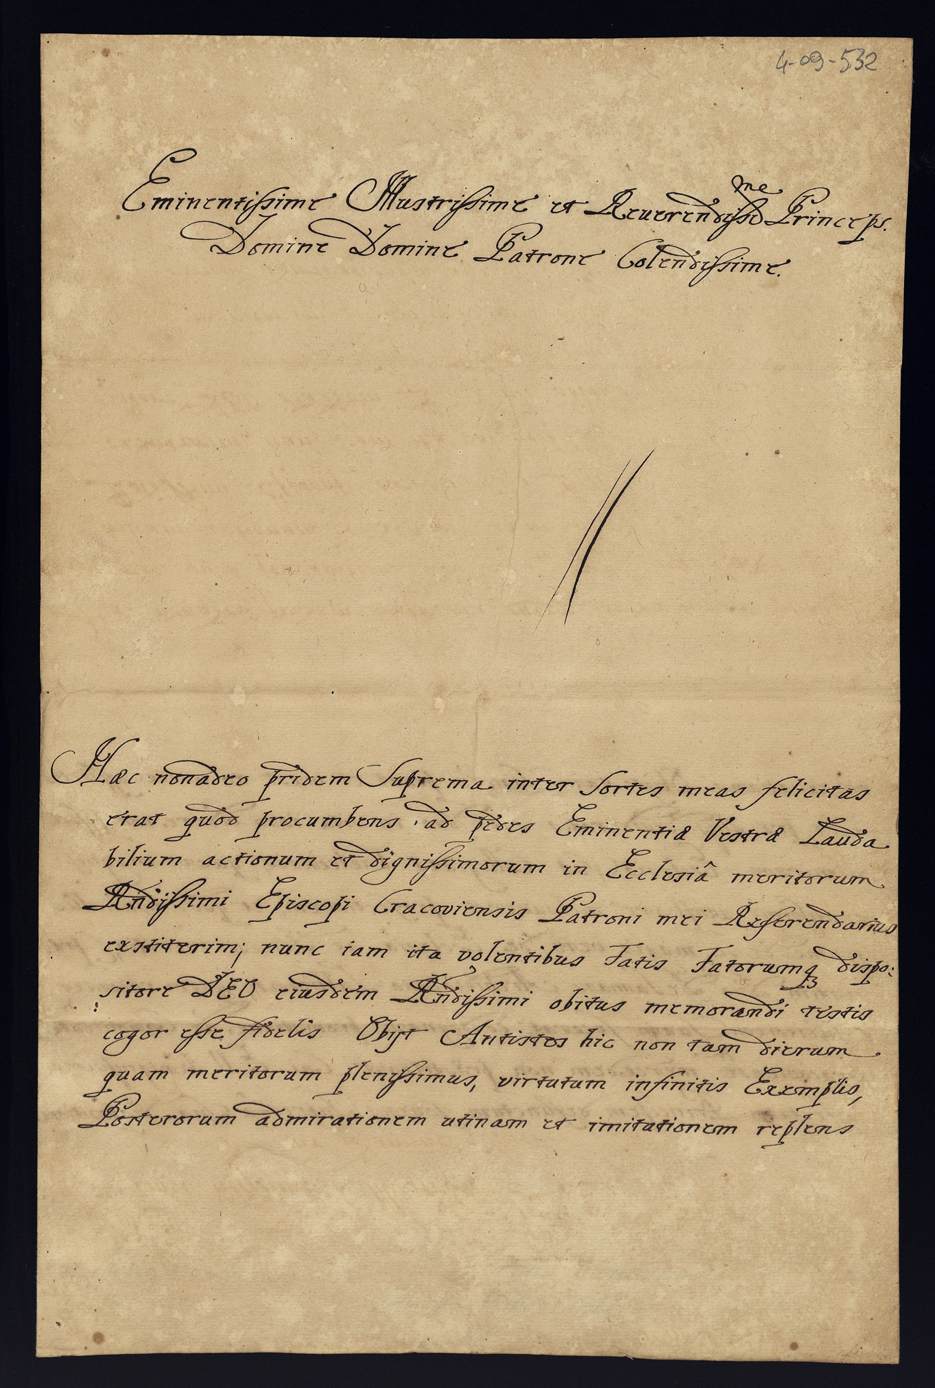 4-09-532
Eminentissime Illustrissime et Reuerendisse me Princeps.
Domine Domine Patrone Colendissime.
Hæc nonadeo pridem Suprema inter Sortes meas felicitas
erat quod procumbens ad pedes Eminentiæ Vestræ Lauda
bilium actionum et dignissimorum in Ecclesiâ meritorum
Rndissimi Episcopi Cracoviensis Patroni mei Referendarius
exstiterim; nunc iam ita volentibus Fatis Fatorumq dispo:
:sitore DEO eiusdem Rndissimi obitus memorandi testis
cogor esse fidelis Obijt Antistes hic non tam dierum
quam meritorum plenissimus, virtutum infinitis Exemplis,
Posterorum admirationem utinam et imitationem replens